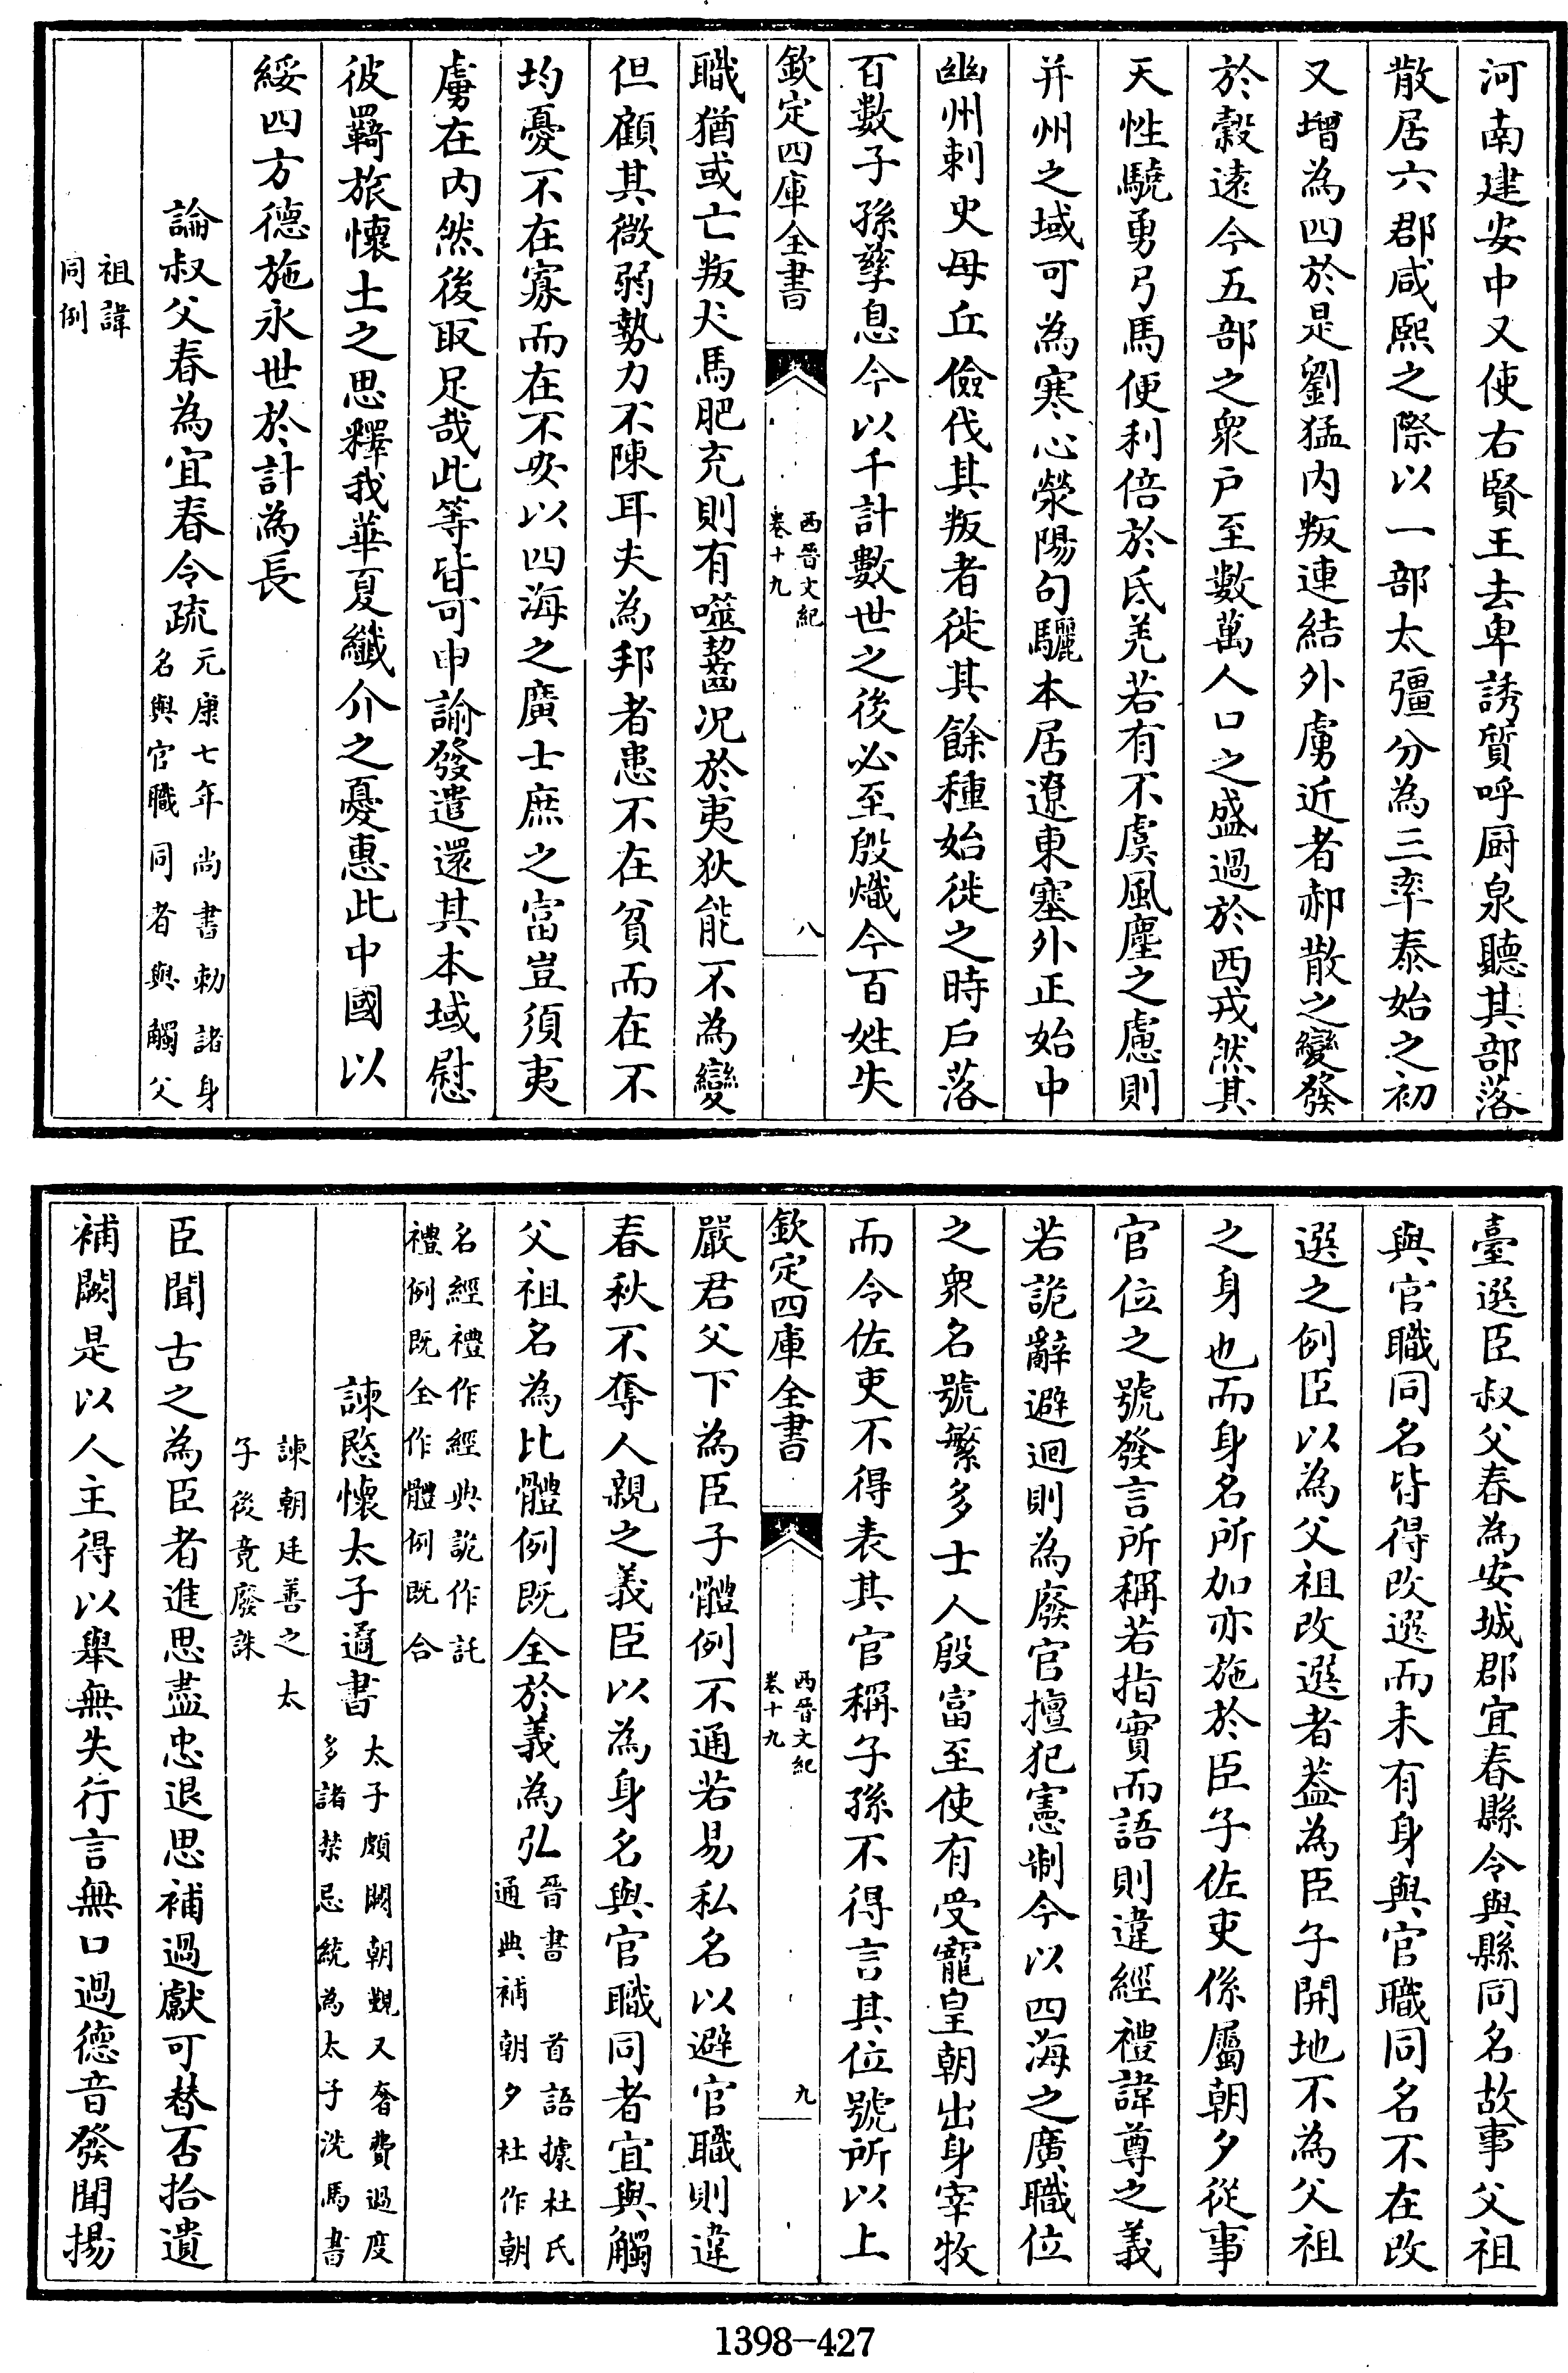 河南建安中又使右賢王去卑誘質呼厨泉聽其部落
散居六郡咸熙之際以一部太彊分為三率泰始之初
又增為四於是劉猛内叛連結外虜近者郝散之變發
於穀遠今五部之衆户至數萬人口之盛過於西戎然其
天性驍勇弓馬便利倍於氐羌若有不虞風塵之慮則
并州之域可為寒心滎陽句驪本居遼東塞外正始中
幽州刺史毋丘儉伐其叛者徙其餘種始徙之時户落
百數子孫孳息今以千計數世之後必至殷熾今百姓失
欽定四庫全書
西晉文紀
卷十九
八
職猶或亡叛犬馬肥充則有噬齧况於夷狄能不為變
但顧其微弱勢力不陳耳夫為邦者患不在貧而在不
均憂不在寡而在不安以四海之廣士庶之富豈須夷
虜在内然後取足哉此等皆可申諭發遣還其本域慰
彼羇旅懷土之思釋我華夏纖介之憂惠此中國以
綏四方德施永世於計為長
論叔父春為宜春令疏
元康七年尚書勅諸身
名與官職同者與觸父
祖諱
同例
臺選臣叔父春為安城郡宜春縣令與縣同名故事父祖
與官職同名皆得改選而未有身與官職同名不在改
選之例臣以為父祖改選者葢為臣子開地不為父祖
之身也而身名所加亦施於臣子佐吏係屬朝夕從事
官位之號發言所稱若指實而語則違經禮諱尊之義
若詭辭避迴則為廢官擅犯憲制今以四海之廣職位
之衆名號繁多士人殷富至使有受寵皇朝出身宰牧
而令佐吏不得表其官稱子孫不得言其位號所以上
欽定四庫全書
西晉文紀
卷十九
九
嚴君父下為臣子體例不通若易私名以避官職則違
春秋不奪人親之義臣以為身名與官職同者宜與觸
父祖名為比體例既全於義為弘
晉書 首語據杜氏
通典補 朝夕杜作朝
名經禮作經典詭作託
禮例既全作體例既合
諫愍懷太子適書
太子頗闕朝覲又奢費過度
多諸禁忌統為太子洗馬書
諫朝廷善之太
子後竟廢誅
臣聞古之為臣者進思盡忠退思補過獻可替否拾遺
補闕是以人主得以舉無失行言無口過德音發聞揚
1398-427